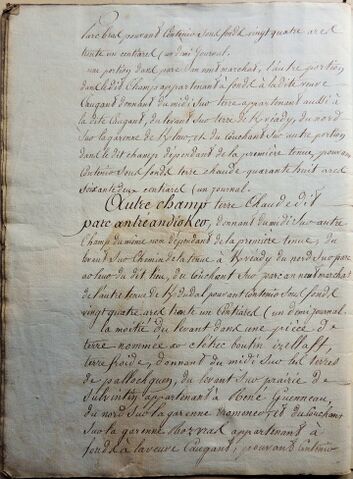 parc bras pouvant Contenir sous fond vingt quatre ares
trente un centiares (un demi Journal.
une portion dans parc an nout marchat, l'autre portion
dans le dit Champ appartenant à fonds à la dite veuve
Caugant donnant du midi sur terre appartenant aussi à
la dite Caugant, du levant sur terre de Kvéady du nord
sur la garenne de et du Couchant sur autre portion
dans le dit champ dépendant de la première tenue, pouvant
Contenir sous fond terre chaude quarante huit ares
soixante deux centiares (un journal.
Autre champ terre Chaude dit
parc donnant du midi sur autre
Champ du même nom dépendant de la première tenue, du
levant sur Chemin de la tenue à Kvéady du nord sur parc
ar leur du dit lieu, du Couchant sur parc an nout marchat
de l'autre tenue de pouvant contenir sous fond
vingt quatre ares trente un Centiares (un demi journal.
la moitié du levant dans une pièce de
terre nommée ar clohec bouten izellaff,
terre froide, donnant du midi sur les terres
de du levant sur prairie de
Sulvintin appartenant à René Guenneau,
du nord sur la garenne et du Couchant
sur la garenne appartenant à
fonds à la veuve Caugant, pouvant Contenir